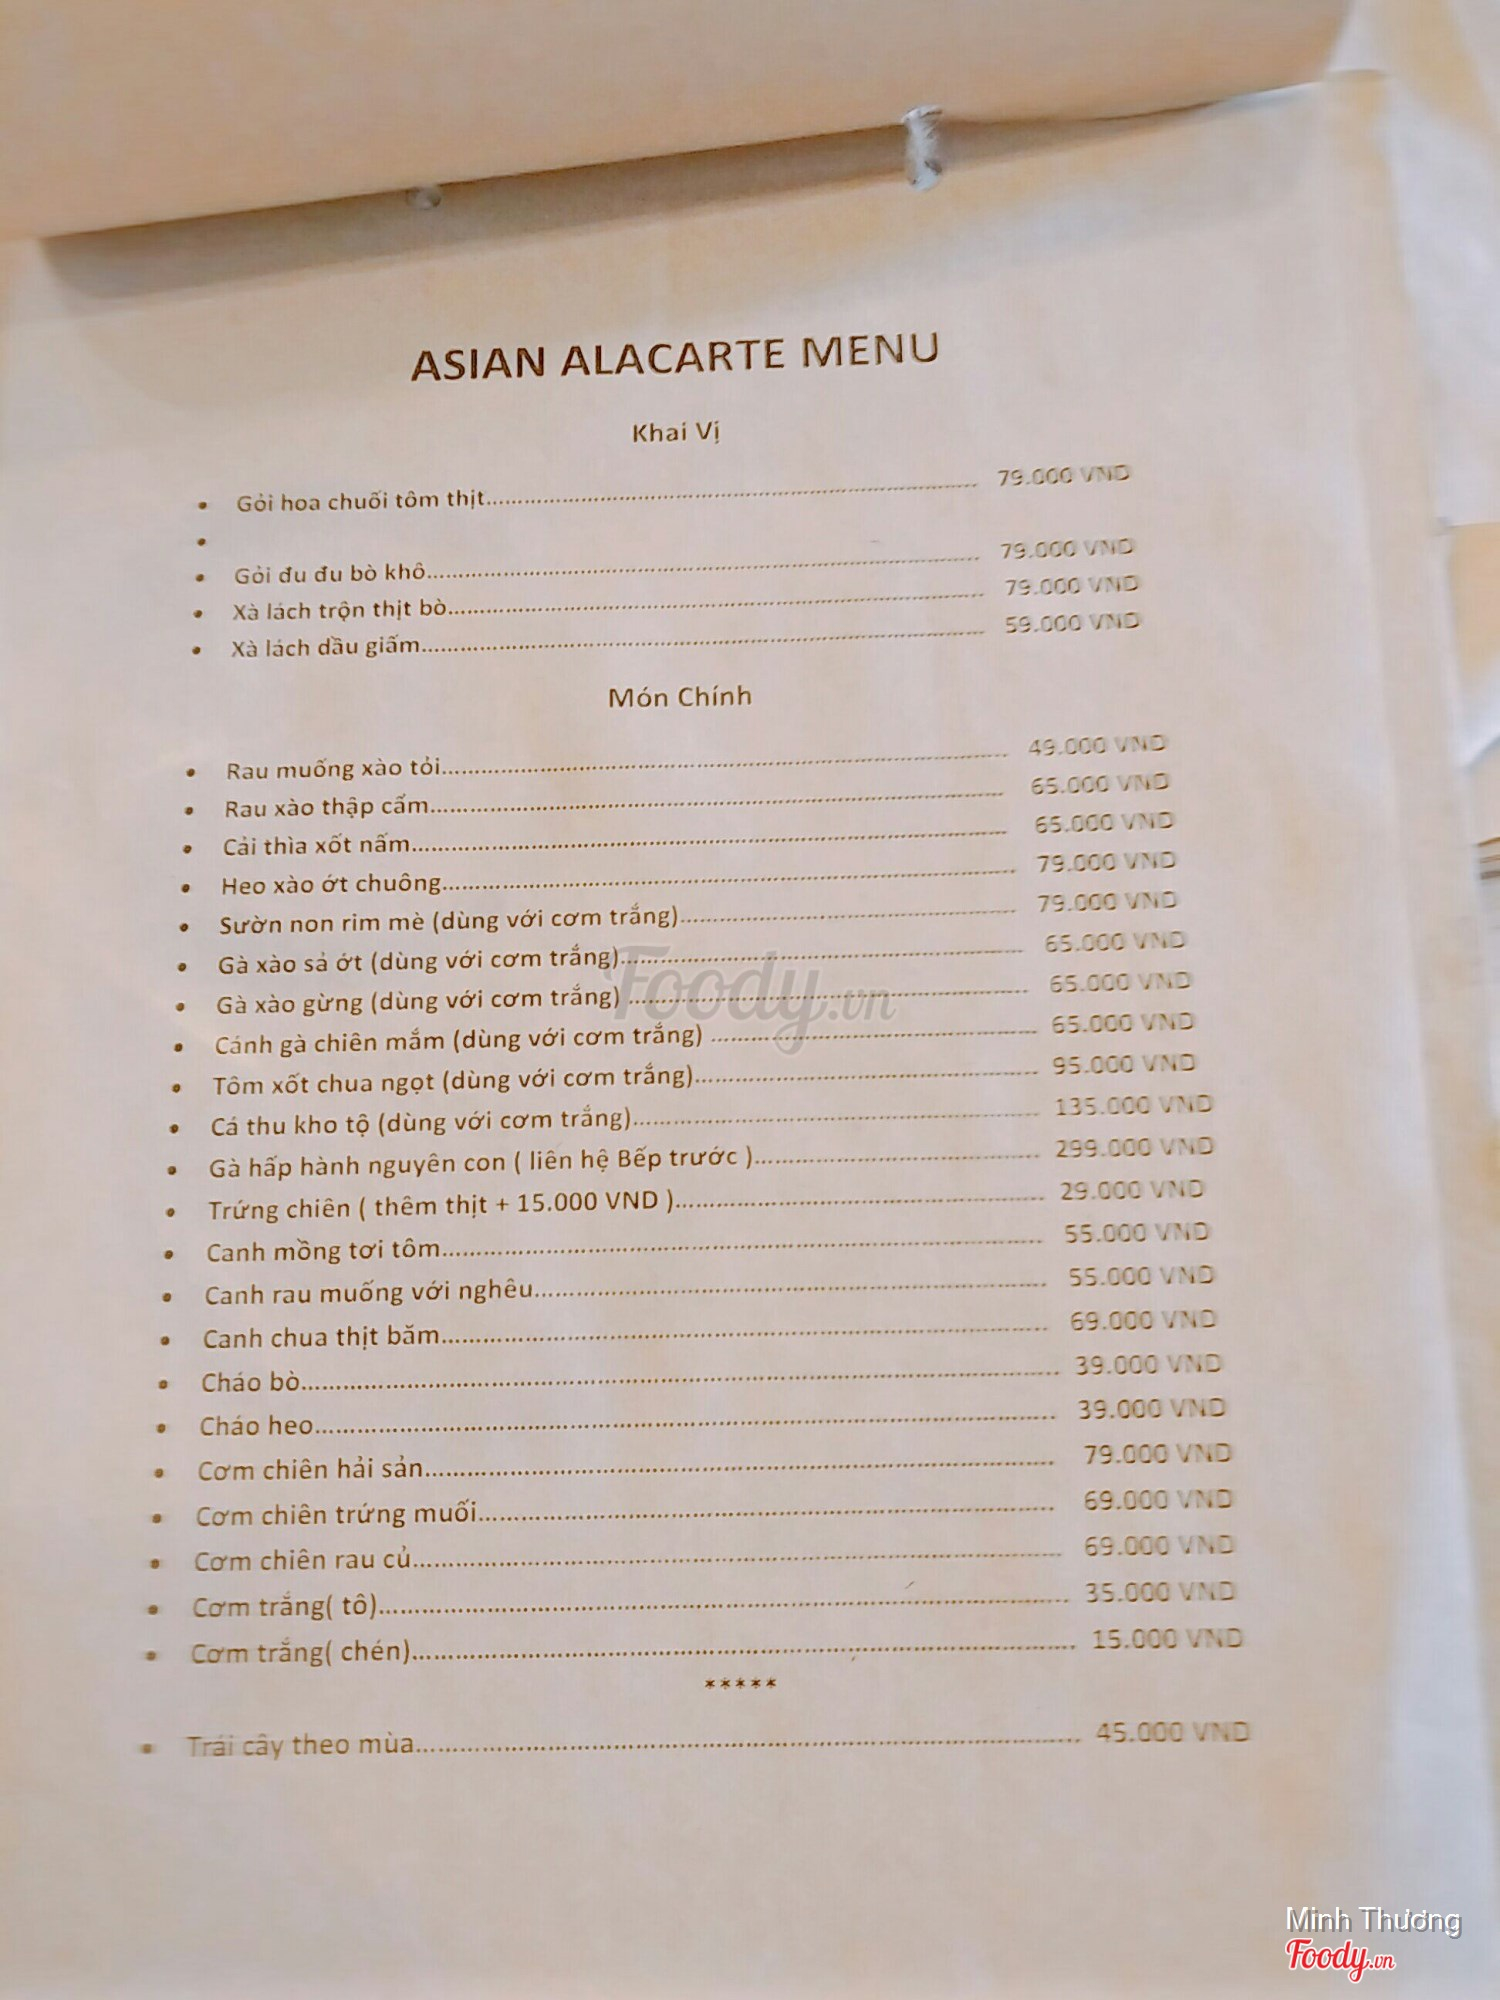 ASIAN ALACARTE MENU
Khai Vị
• Gỏi hoa chuối tôm thịt........ 79.000 VND
•
• Gỏi đu đu bò khô........ 79.000 VND
• Xà lách trộn thịt bò........ 79.000 VND
• Xà lách dầu giấm........ 59.000 VND
Món Chính
• Rau muống xào tỏi........ 49.000 VND
• Rau xào thập cẩm........ 65.000 VND
• Cải thìa xốt nấm........ 65.000 VND
• Heo xào ớt chuông........ 79.000 VND
• Sườn non rim mè (dùng với cơm trắng)........ 79.000 VND
• Gà xào sả ớt (dùng với cơm trắng)........ 65.000 VND
• Gà xào gừng (dùng với cơm trắng) ........ 65.000 VND
• Cánh gà chiên mắm (dùng với cơm trắng) ........ 65.000 VND
• Tôm xốt chua ngọt (dùng với cơm trắng)........ 95.000 VND
• Cá thu kho tộ (dùng với cơm trắng)........ 135.000 VND
• Gà hấp hành nguyên con ( liên hệ Bếp trước )........ 299.000 VND
• Trứng chiên ( thêm thịt + 15.000 VND )........ 29.000 VND
• Canh mồng tơi tôm........ 55.000 VND
• Canh rau muống với nghêu........ 55.000 VND
• Canh chua thịt băm........ 69.000 VND
• Cháo bò........ 39.000 VND
• Cháo heo........ 39.000 VND
• Cơm chiên hải sản........ 79.000 VND
• Cơm chiên trứng muối........ 69.000 VND
• Cơm chiên rau củ........ 69.000 VND
• Cơm trắng( tô)........ 35.000 VND
• Cơm trắng( chén)........ 15.000 VND
*****
• Trái cây theo mùa........ 45.000 VND
Foody.vn
Minh Thương
Foody.vn